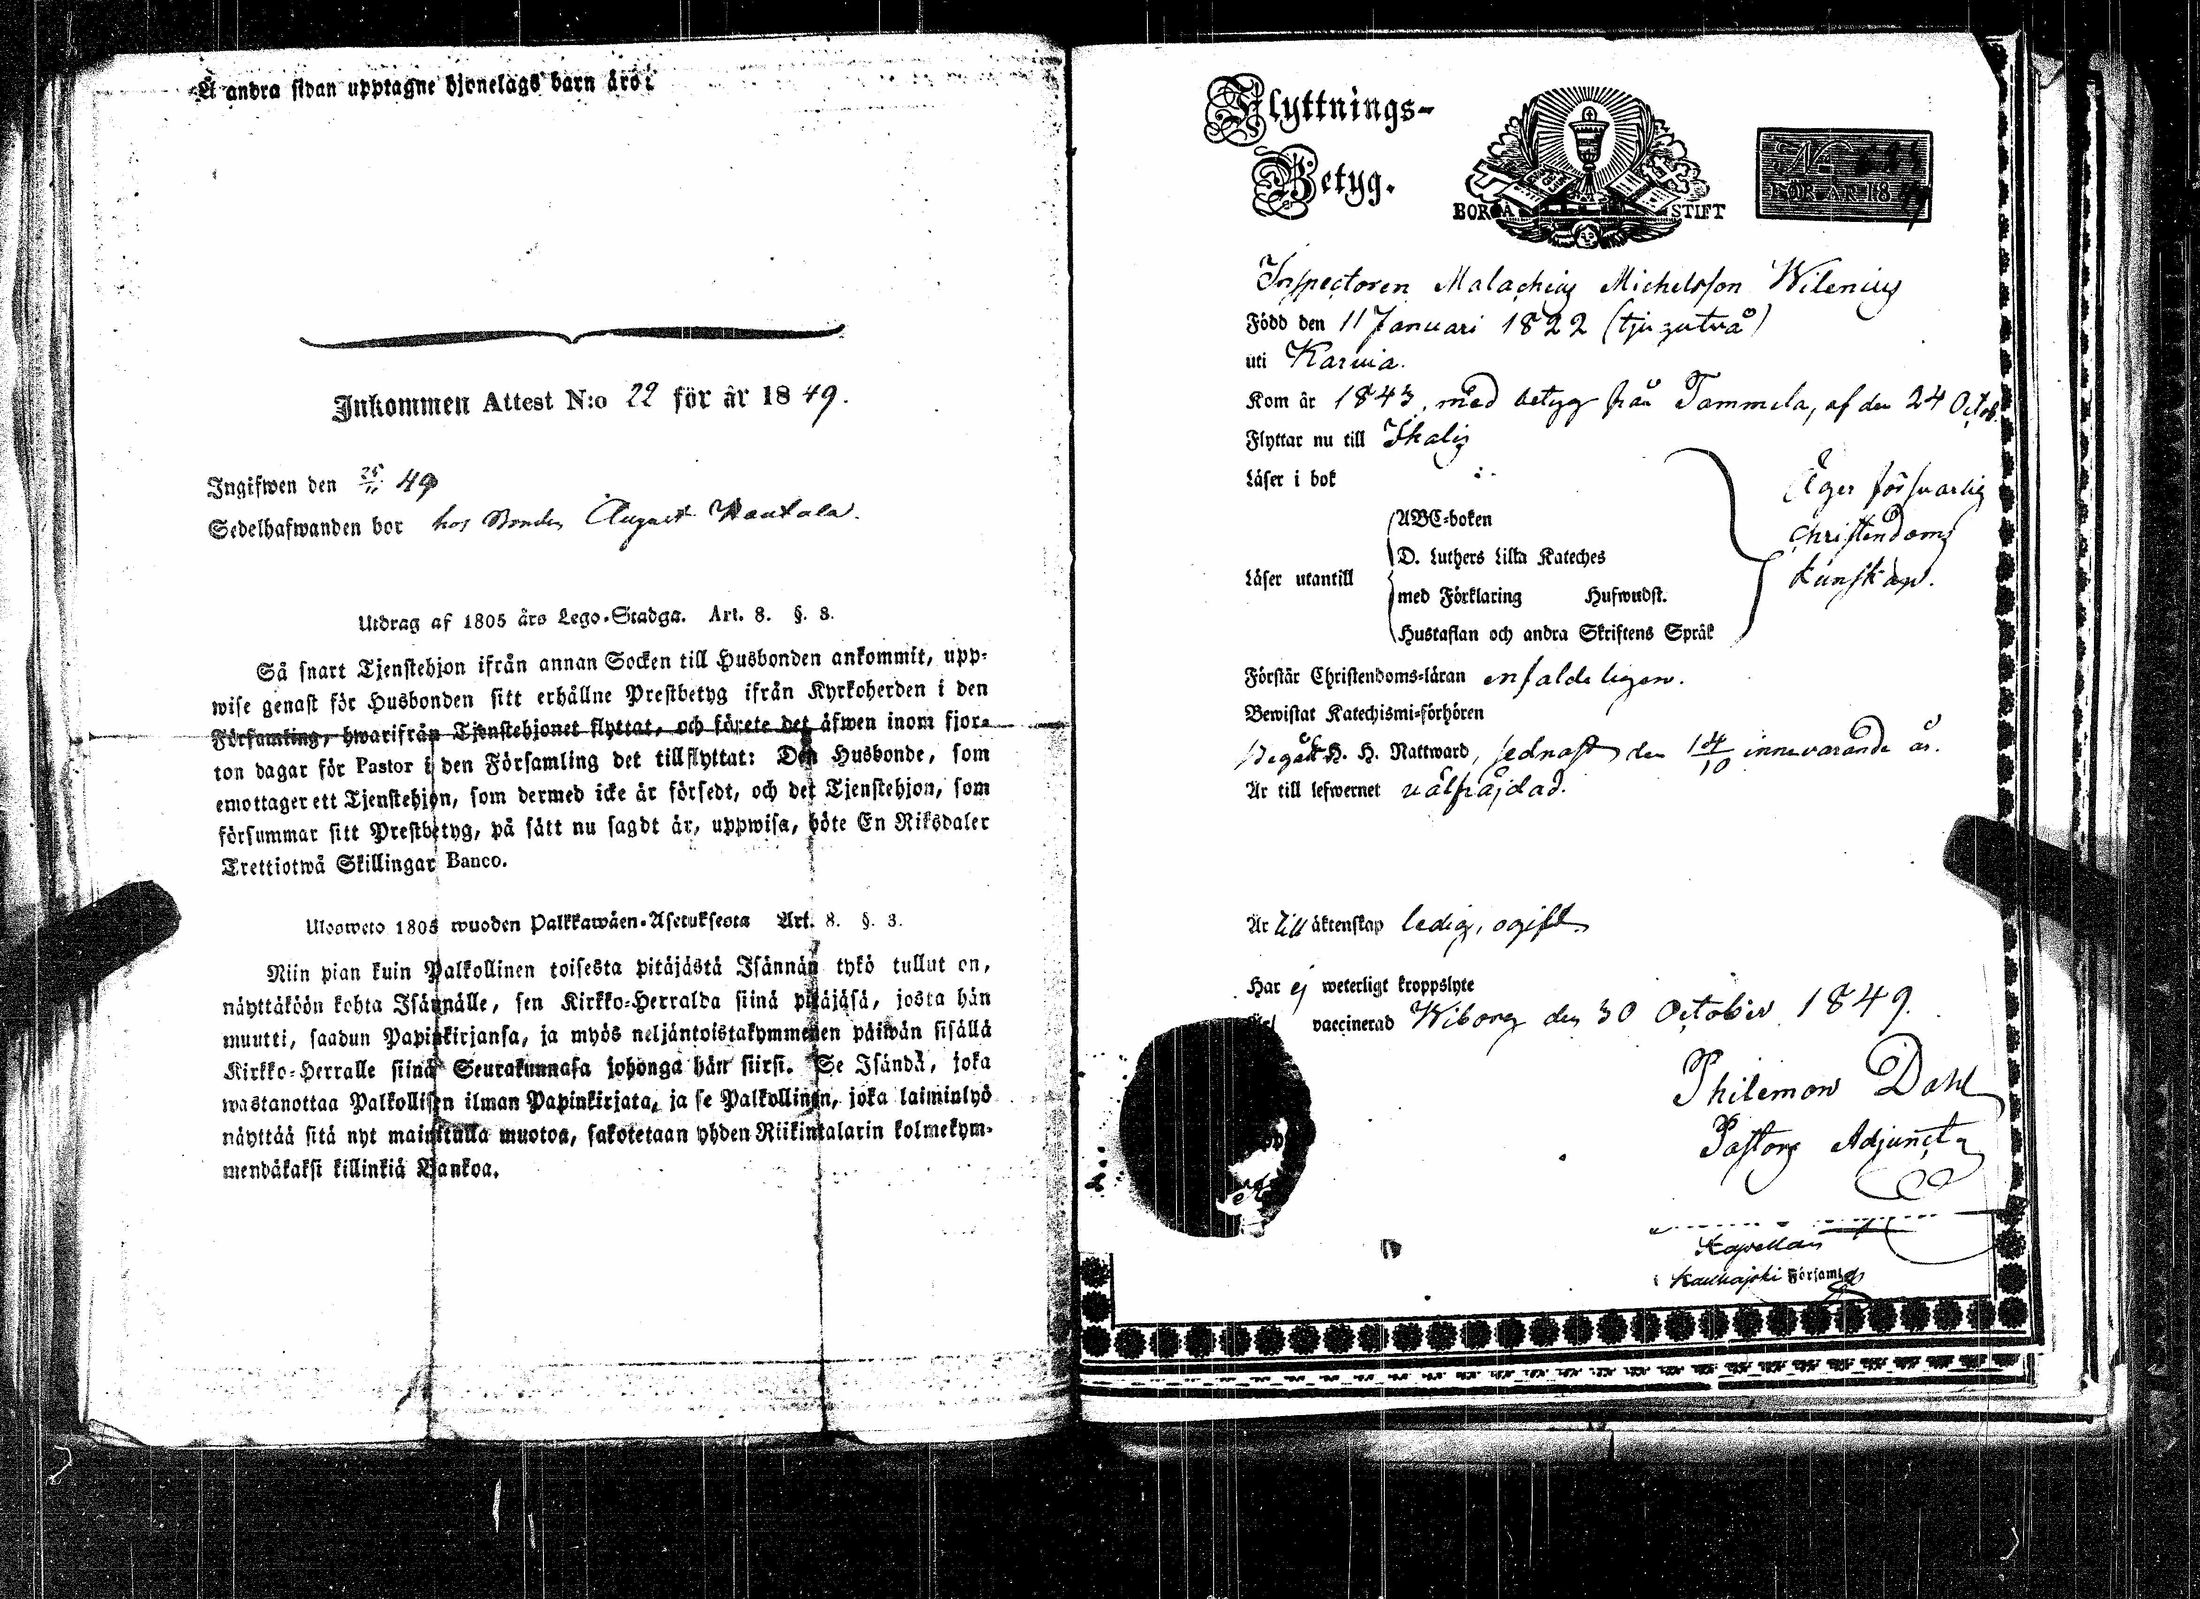 Å andra sidan upptagne hjonelags barn äro:
Inkommen Attest N:o 22 för år 1849.
Ingifwen den 25/11 49
Sedelhafwanden bor hos Bonden August
Utdrag af 1805 års Lego-Stadga. Art. 8. §. 3.
Så snart Tjenstehjon ifrån annan Socken till Husbonden ankommit, upp-
wise genast för Husbonden sitt erhållne Prestbetyg ifrån Kyrkoherden i den
Församling, hwarifrån Tjenstehjonet flyttat, och förete det äfwen inom fjor-
ton dagar för Pastor i den Församling det tillflyttat: Den Husbonde, som
emottager ett Tjenstehjon, som dermed icke är försedt, och det Tjenstehjon, som
försummar sitt Prestbetyg, på sätt nu sagdt är, uppwisa, böte En Riksdaler
Trettiotwå Skillingar Banco.
Ulosweto 1805 wuoden Palkkawäen-Asetuksesta Art. 8. §. 3.
Niin pian kuin Palkollinen toisesta pitäjästä Isännän tykö tullut on,
näyttäköön kohta Isännälle, sen Kirkko-Herralda siinä pitäjäsä, josta hän
muutti, saadun Papinkirjansa, ja myös neljäntoistakymmenen päiwän sisällä
Kirkko-Herralle siinä Seurakunnasa johonga hän siirsi. Se Isändä, joka
wastanottaa Palkollisen ilman Papinkirjata, ja se Palkollinen, joka laiminlyö
näyttää sitä nyt mainitulla muotoa, sakotetaan yhden Riikintalarin kolmekym-
mendäkaksi killinkiä Bankoa.
Flyttnings-
Betyg.
BORGÅ STIFT
FÖR ÅR 1849
Inspectoren Malachius Michelsson Wilenius
Född den 11 Januari 1822 (tjugutvå)
uti Karvia.
Kom år 1843, med betyg från Tammela, af den 24 Octob.
Flyttar nu till Ikalis
Läser i bok
Läser utantill
ABC-boken
D. Luthers Lilla Kateches
med Förklaring Hufwudst.
Hustaflan och andra Skriftens Språk
Äger försvarlig
Christendoms
kunskap.
Förstår Christendoms-läran enfaldeligen.
Bewistat Katechismi-förhören
Begått H. H. Nattward, sednast den 14/10 innevarande år.
Är till lefwernet välfräjdad.
Är till äktenskap ledig, ogift.
Har ej weterligt kroppslyte
vaccinerad Wiborg den 30 October 1849.
Philemon Dahl
Pastors Adjunct
Kapellan
i Kauhajoki Församl